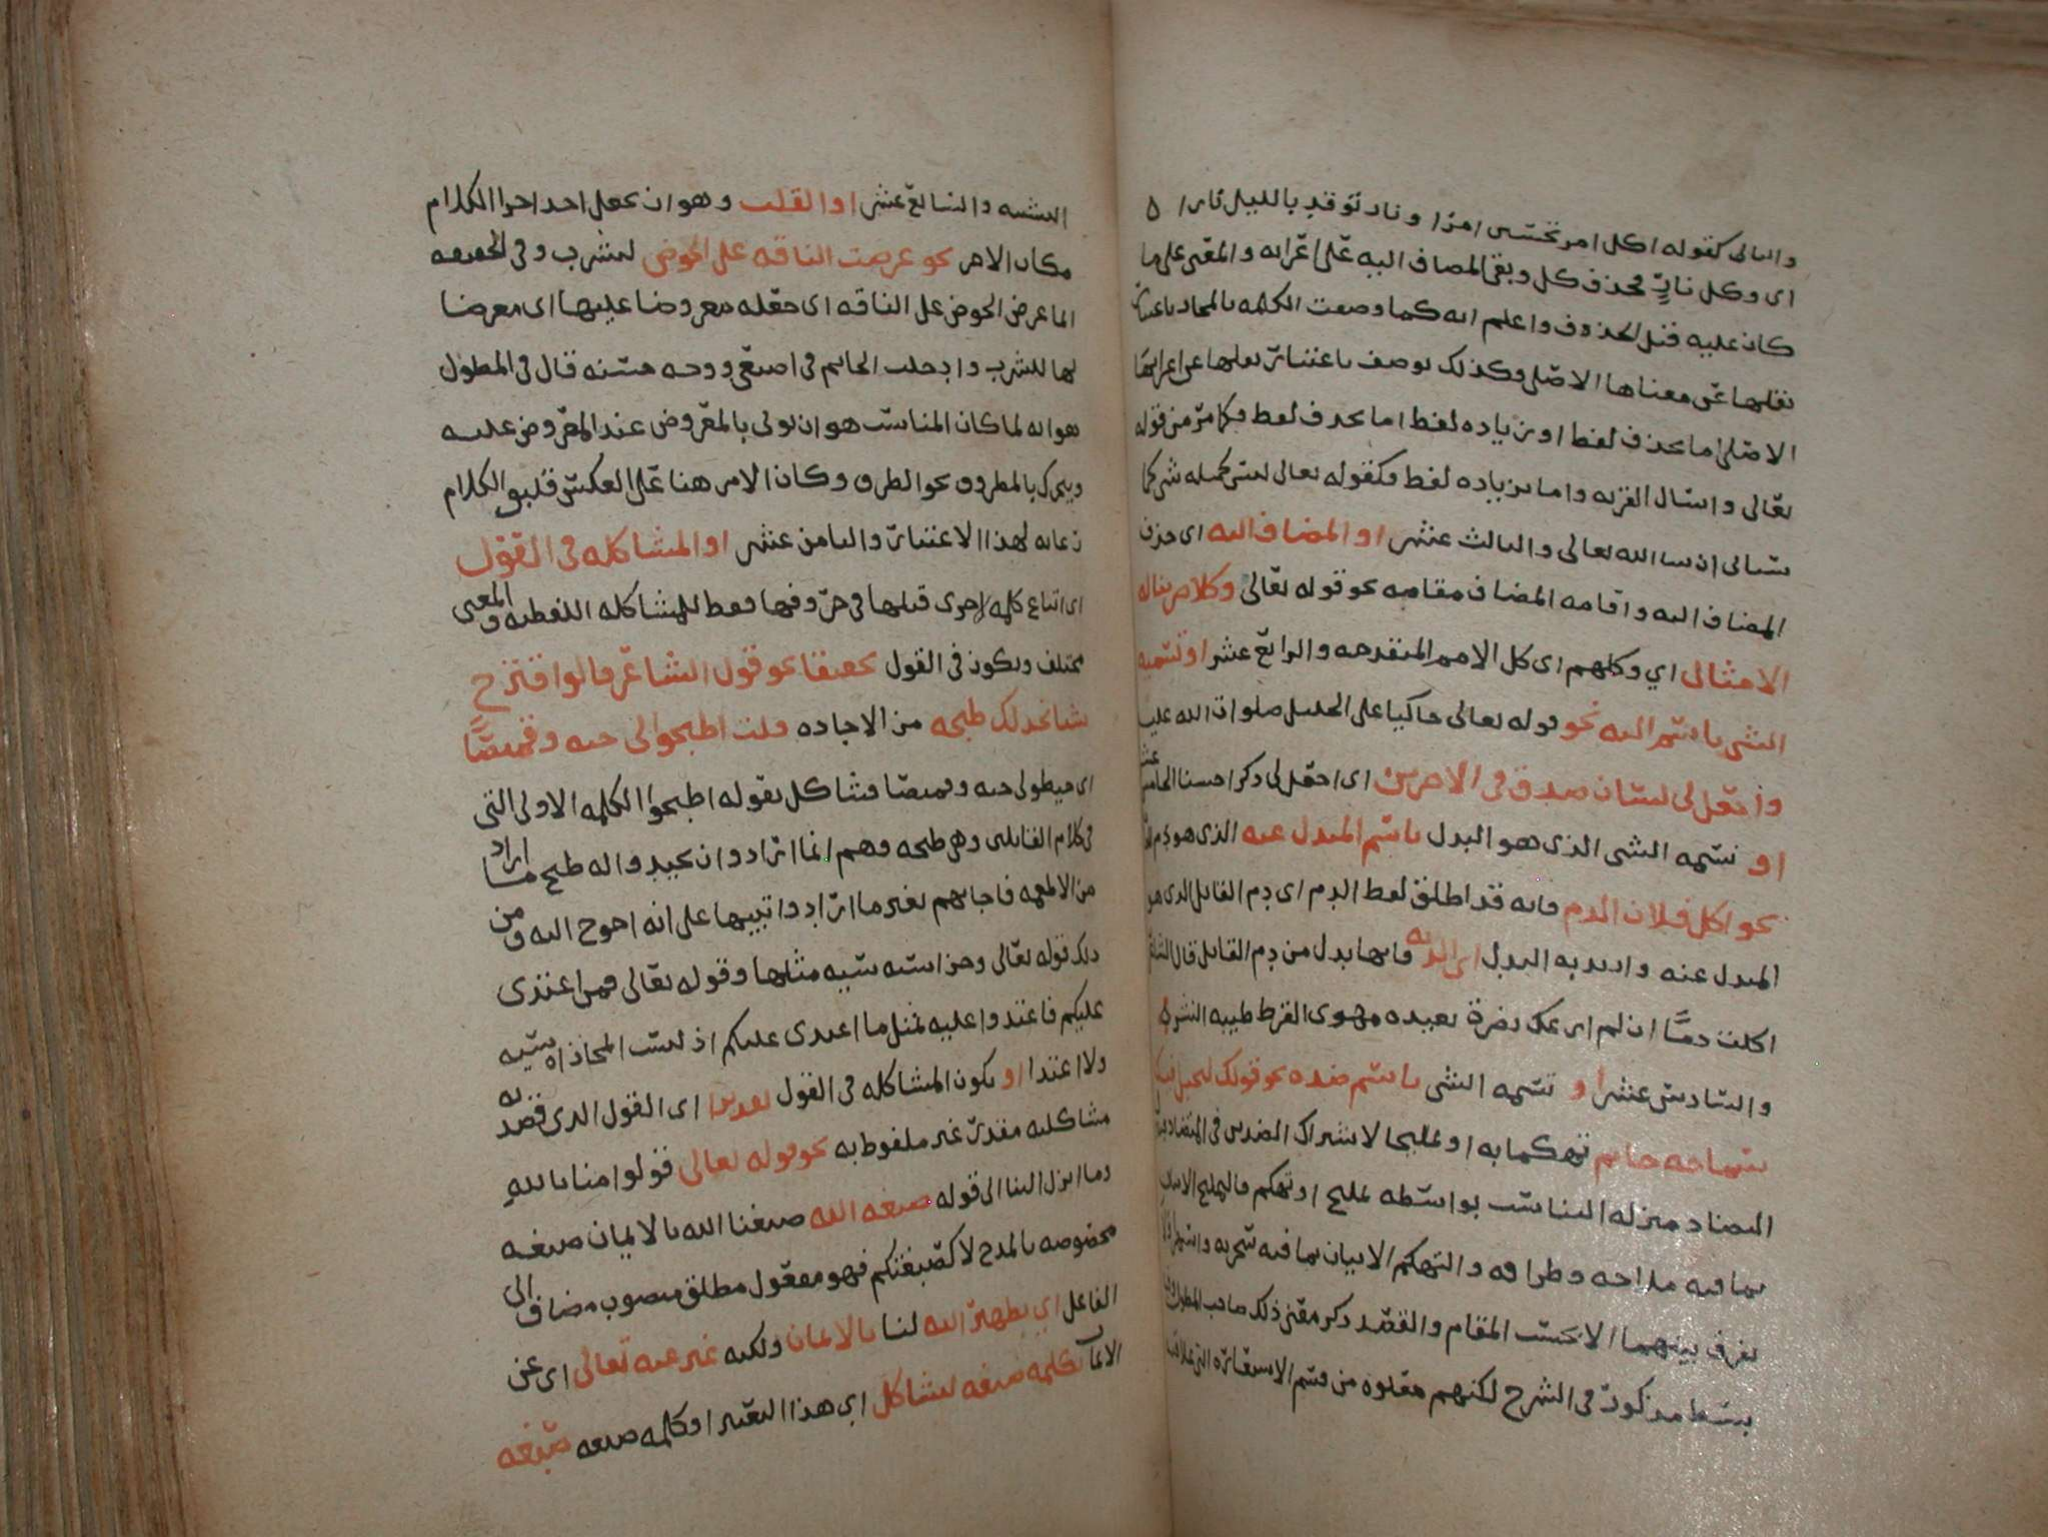 والثاني كقوله اكل امرء تحسبين امرا ونار توقد بالليل نارا ه
اي وكل نارٍ فحذف كل وبقي المضاف اليه على اعرابه والمعنى على ما
كان عليه قبل الحذف واعلم انه كما وصفت الكلمه بالمجاز باعتبار
نقلها عن معناها الاصلي وكذلك توصف باعتبار نقلها عن اعرابها
الاصلي اما بحذف لفظ او بزياده لفظ اما بحذف لفظ فكما مر من قوله
تعالى واسال القريه واما بزياده لفظ فكقوله تعالى ليس كمثله شي كما
سياتي ان سا الله تعالى والثالث عشر او المضاف اليه اي حذف
المضاف اليه واقامه المضاف مقامه نحو قوله تعالى وكلا ضربنا له
الامثال اي وكلهم اي كل الامم المتقدمه والرابع عشر او تسميه
الشي باسم اليه نحو قوله تعالى حاكيا على الخليل صلوات الله عليه
واجعل لي لسان صدق في الاخرين اي اجعل لي ذكرا حسنا الخامس عشر
او تسميه الشي الذي هو البدل باسم المبدل عنه الذي هو دم
نحو اكل فلان الدم فانه قد اطلق لفظ الدم اي دم القاتل الذي هو
المبدل عنه واريد به البدل اي الديه فانها بدل من دم القاتل قال الشاعر
اكلت دمًا ان لم ارعك بضرة بعيده مهوى القرط طيبه النشر
والسادس عشر او تسميه الشي باسم ضده نحو قولك لبخيل فيك
سماحه حاتم تهكما به او تمليحا لاشتراك الضدين في التضاد فينزل
التضاد منزله التناسب بواسطه تمليح او تهكم فالتمليح الاتيان
بما فيه ملاحه وظرافه والتهكم الاتيان بما فيه سخريه واستهزا
يفرق بينهما الا بحسب المقام والقصد ذكر معنى ذلك صاحب المطول
بسط مذكور في الشرح لكنهم جعلوه من قسم الاستعاره التي علاقتها
التشبيه والسابع عشر او القلب وهو ان يجعل احد اجزا الكلام
مكان الاخر نحو عرضت الناقه على الحوض لتشرب وفي الحقيقه
انما عرض الحوض على الناقه اي جعله معروضا عليها اي معرضا
لها للشرب وادخلت الخاتم في اصبعي ووجه حسنه قال في المطول
هو انه لما كان المناسب هو ان يوتى بالمعروض عند المعروض عليه
ويتحرك بالمظروف نحو الظرف وكان الامر هنا على العكس قلبوا الكلام
رعايه لهذا الاعتبار والثامن عشر او المشاكله في القول
اي اتباع كلمه لاخرى قبلها في حروفها فقط للمشاكله اللفظيه والمعنى
مختلف ويكون في القول تحقيقا نحو قول الشاعر قالوا اقترح
شيا نجد لك طبخه من الاجاده قلت اطبخوا لي جبه وقميصًا
اي خيطوا لي جبه وقميصا فشاكل بقوله اطبخوا الكلمه الاولى التي
في كلام القائلين وهي طبخه وهم انما ارادوا ان يجيدوا له طبخ ما اراد
من الاطعمه فاجابهم بغير ما ارادوا تنبيها على انه احوج اليه ومن
ذلك قوله تعالى وجزا سيئه سيئه مثلها وقوله تعالى فمن اعتدى
عليكم فاعتدوا عليه بمثل ما اعتدى عليكم اذ ليست المجازاه سيئه
ولا اعتدا او يكون المشاكله في القول تقديرا اي القول الذي قصد به
مشاكليه مقدر غير ملفوظ به نحو قوله تعالى قولوا امنا بالله
وما انزل الينا الى قوله صبغه الله صبغنا الله بالايمان صبغه
مخصوصه بالمدح لا كصبغتكم فهو مفعول مطلق منصوب مضاف الى
الفاعل اي تطهير الله لنا بالايمان ولكنه عبر عنه تعالى اي عن
الايمان بكلمه صبغه ليشاكل اي هذا التعبير او كلمه صبغه صبغه